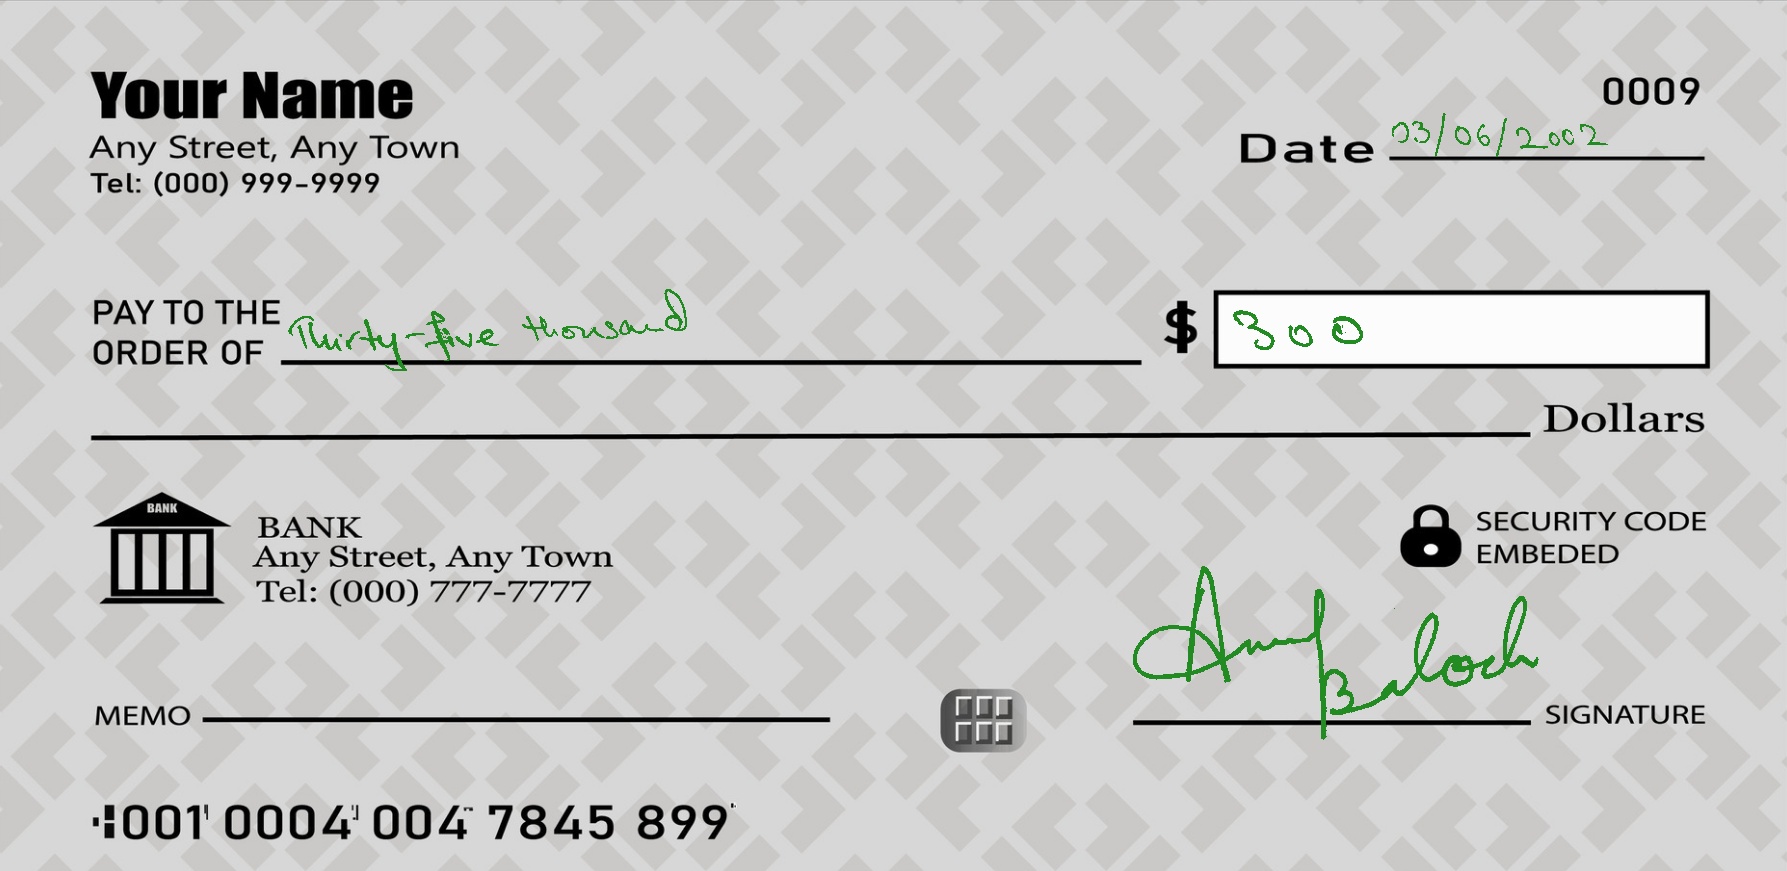 Your Name
Any Street, Any Town
Tel: (000) 999-9999
0009
Date 03/06/2002
PAY TO THE
ORDER OF Thirty-five thousand
$ 300
Dollars
BANK
BANK
Any Street, Any Town
Tel: (000) 777-7777
SECURITY CODE
EMBEDED
Baloch
MEMO
SIGNATURE
001 0004 004 7845 899